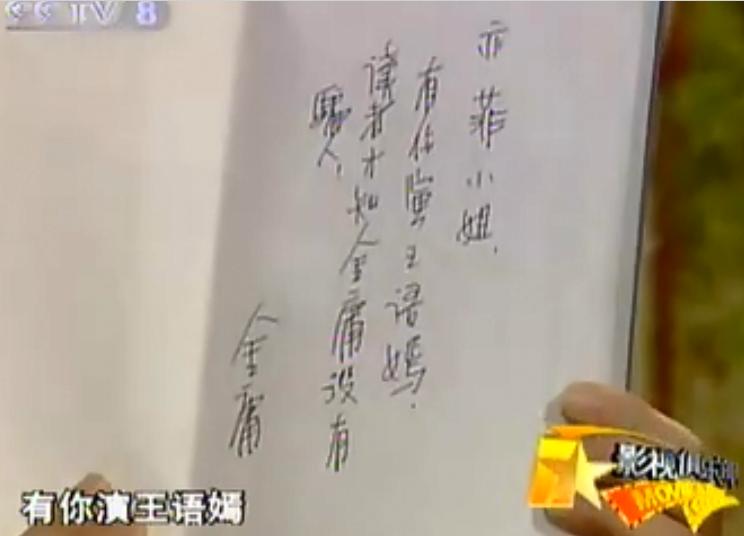 CCTV 8
亦菲小姐,
有你演王语嫣.
读者才知金庸没有
骗人,
金庸
有你演王语嫣
影视俱乐部